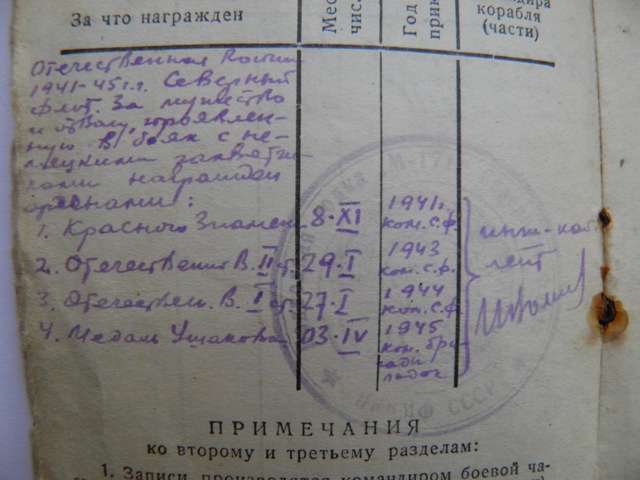 За что награжден
Мес
чис
Год
при
дира
корабля
(части)
Отечественная
1941-45 г.г. Северный
флот. За мужество
и отвагу, проявлен-
ную в боях с не-
мецкими захватчи-
ками награжден
орденами:
1. Красного Знамени 8·XI 1941г. ком. С.Ф.
2. Отечествення В. II ст. 29·I 1943 ком. С.Ф.
3. Отечествен. В. I ст. 27·I 1944 ком. С.Ф.
4. Медаль Ушакова 03·IV 1945 ком. бри-
гады
лодок
инж-кап
лейт
М-171
ВМФ СССР
ПРИМЕЧАНИЯ
ко второму и третьему разделам:
1. Записи производятся командиром боевой ча-